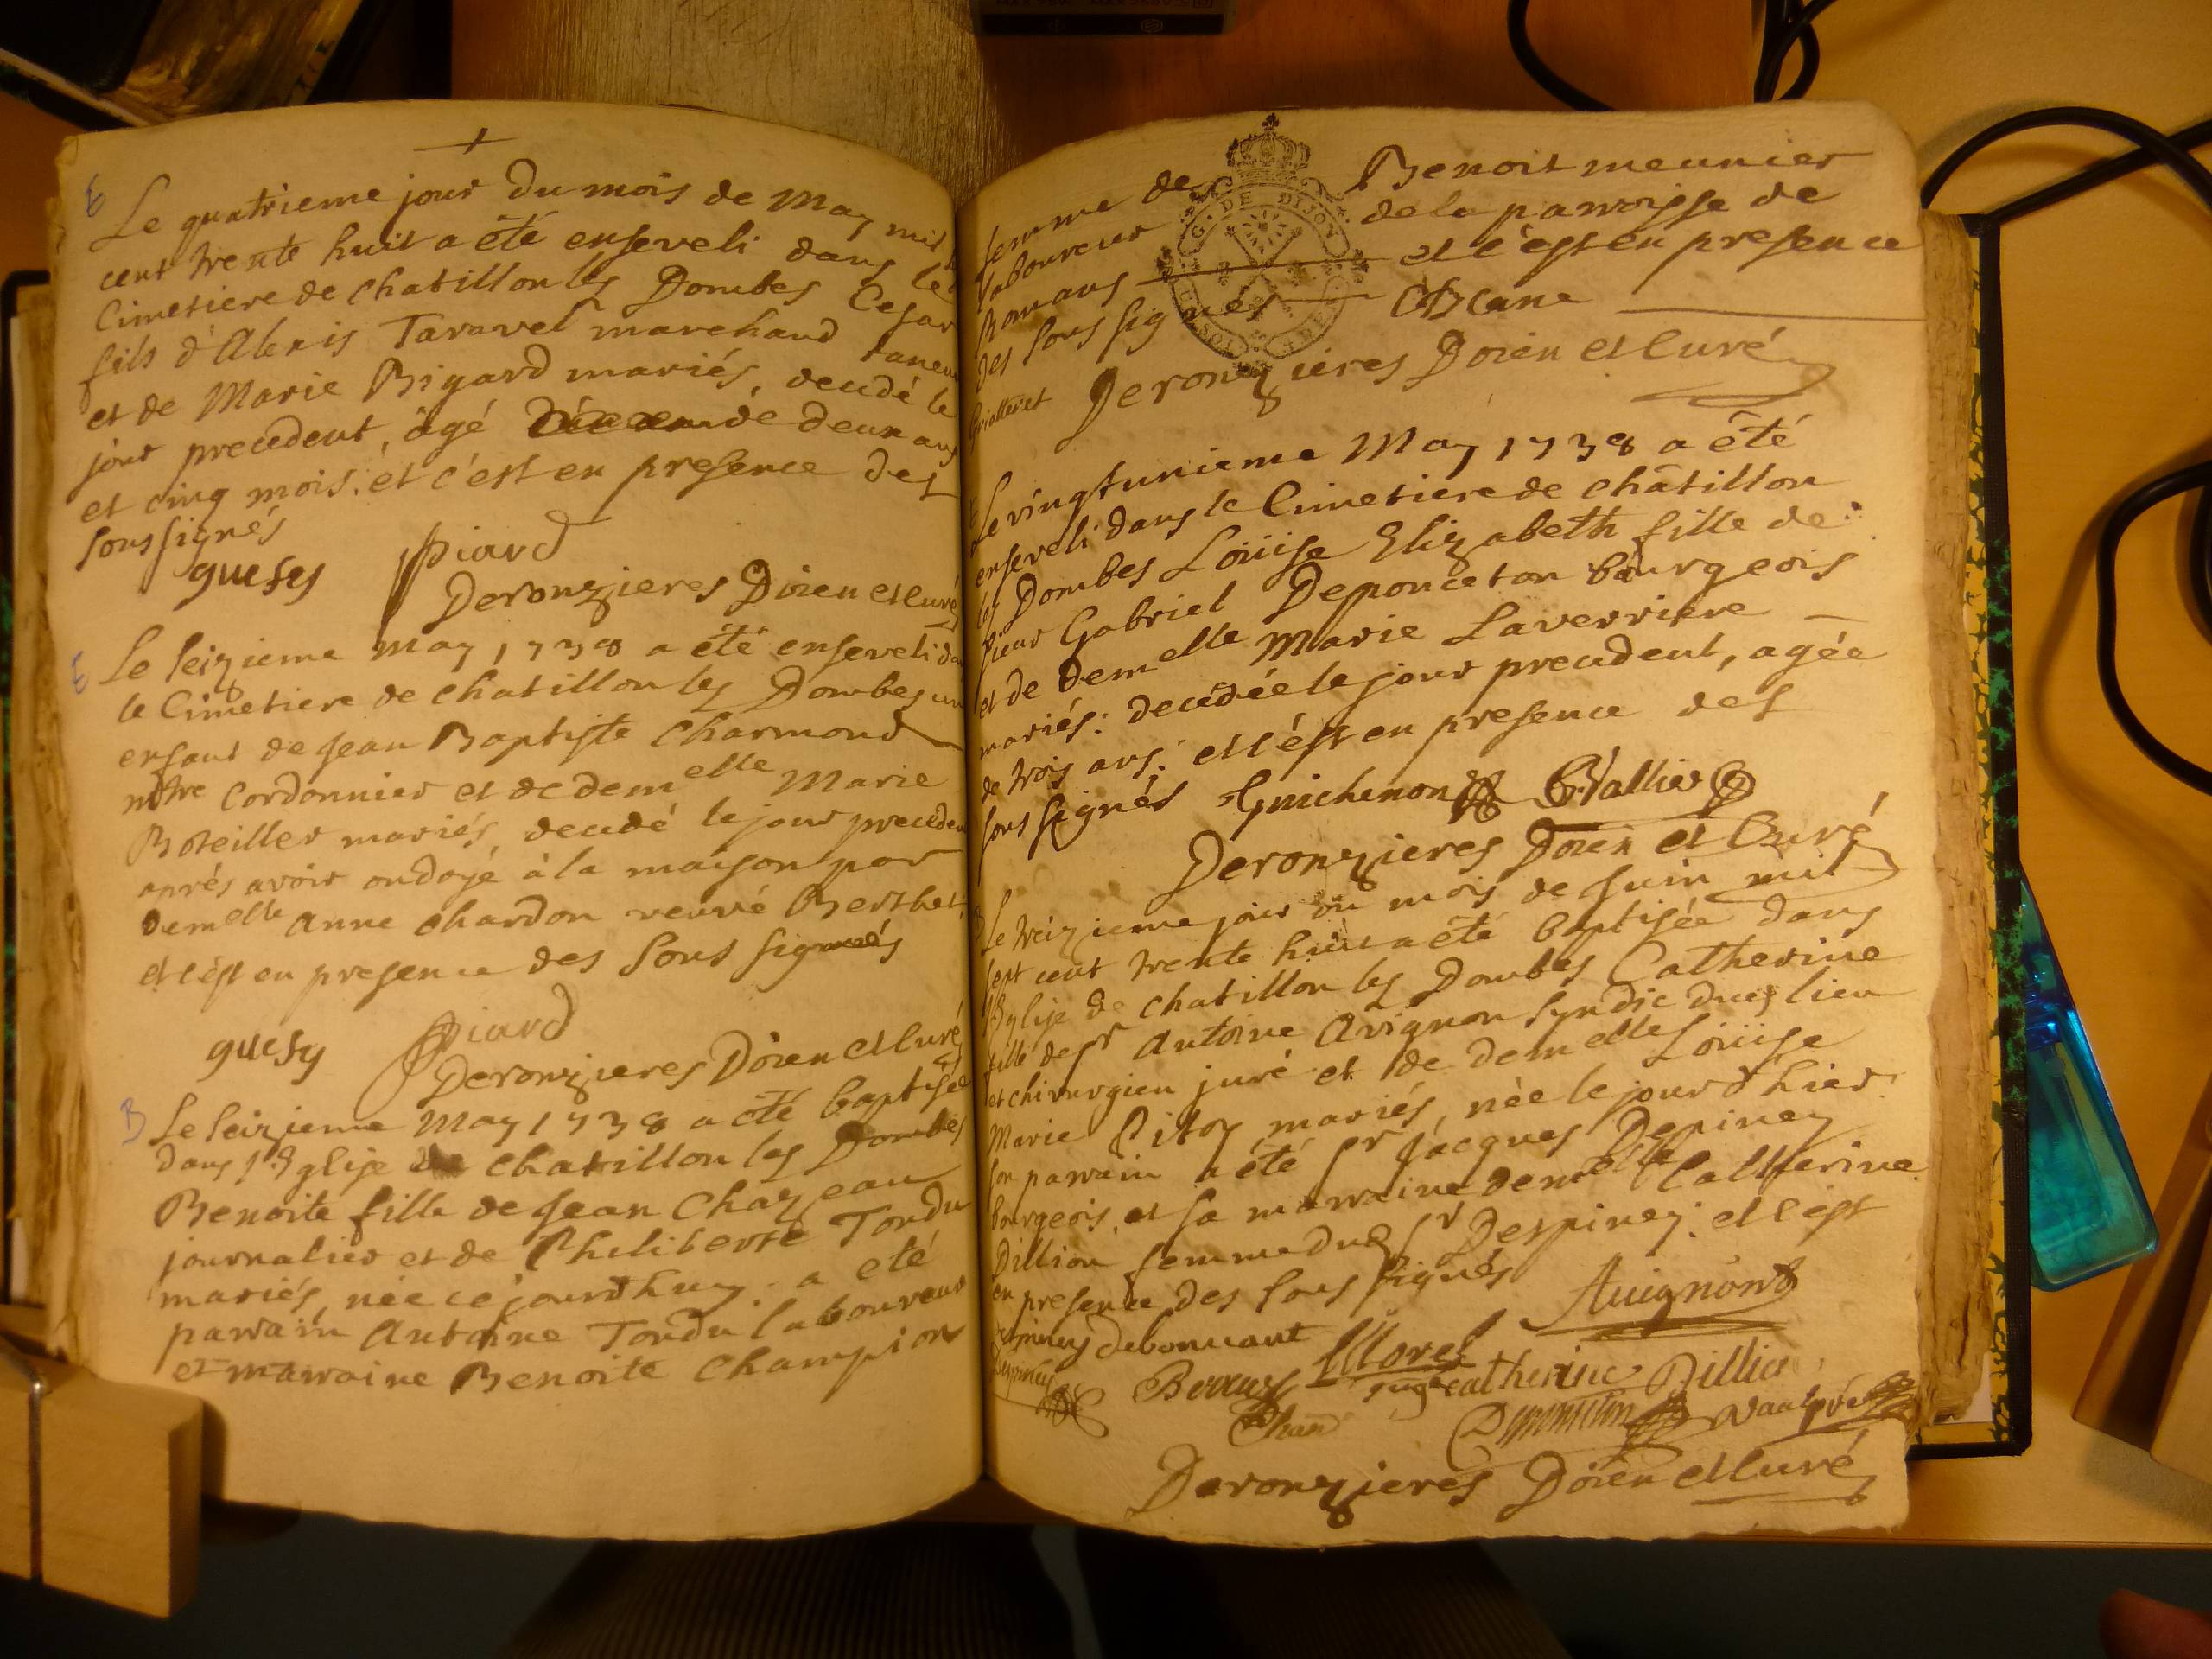 E
Le quatrieme jour du mois de may mil
cent trente huit a été enseveli dans le
Cimetiere de chatillon les Dombes Cesar
fils d'Alexis Taravel marchand taneur
et de Marie Bigard mariés, decedé le
jour precedent, âgé de deux ans
et cinq mois. et c'est en presence des
soussignés
guesy Piard
Deronzieres Doïen et Curé
E
Le seizieme may 1738 a été enseveli dans
le Cimetiere de chatillon les Dombes un
enfant de Jean Baptiste Charmond
mtre Cordonnier et de demelle Marie
Boteiller mariés, decedé le jour precedent
aprés avoir ondoyé à la maison par
demelle Anne Chardon veuve Berthet
et c'est en presence des sous signés
guesy Piard
Deronzieres Doïen et Curé
B
Le seizieme May 1738 a été baptisée
dans l'Eglise de chatillon les Dombes
Benoite fille de Jean Chazeau
journalier et de Philiberte Tondu
mariés, née ce jourdhuy. a été
parrain Antoine Tondu laboureur
et marraine Benoite Champion
femme de Benoit meunier
laboureur de la parroisse de
Romans et c'est en presence
des sous signés
G. DE DIJON
Deronzieres Doïen et Curé
Le vingtunieme May 1738 a été
enseveli dans le Cimetiere de châtillon
les Dombes Loüise Elizabeth fille de
sieur Gabriel Deponceton bourgeois
et de Demelle Marie Laverriere
mariés: decedée le jour precedent, agée
de trois ans: et c'est en presence des
sous signés Guichenon Vallier
Deronzieres Doïen et Curé
B
Le treizieme jour du mois de Juin mil
sept cent trente huit a été baptisée dans
l'Eglise de chatillon les Dombes Catherine
fille de sr Antoine Avignon syndic dud lieu
et chirurgien juré et de demelle Loüise
Marie Pitoy mariés, née le jour d'hier.
son parrain a été sr Jacques Depiney
bourgeois, et sa marraine demelle Catherine
Dillion femme dud sr Despiney: et c'est
en presence des sous signés Avignon
debonvant Morel
Despiney catherine Dillion
Deronzieres Doïen et Curé